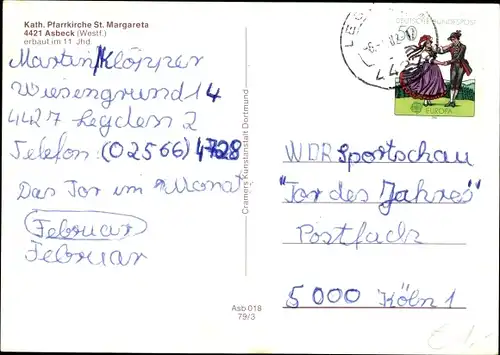 Kath. Pfarrkirche St. Margareta
4421 Asbeck (Westf.)
erbaut im 11. Jhd.
Martin Klöpper
Wiesengrund 14
4427 Legden 2
Telefon: (02566) 4728
Das Tor im Monat
Februar
Februar
Cramers Kunstanstalt Dortmund
Asb 018
79/3
DEUTSCHE BUNDESPOST
50
EUROPA
WDR Sportschau
"Tor des Jahres"
Postfach
5000 Köln 1